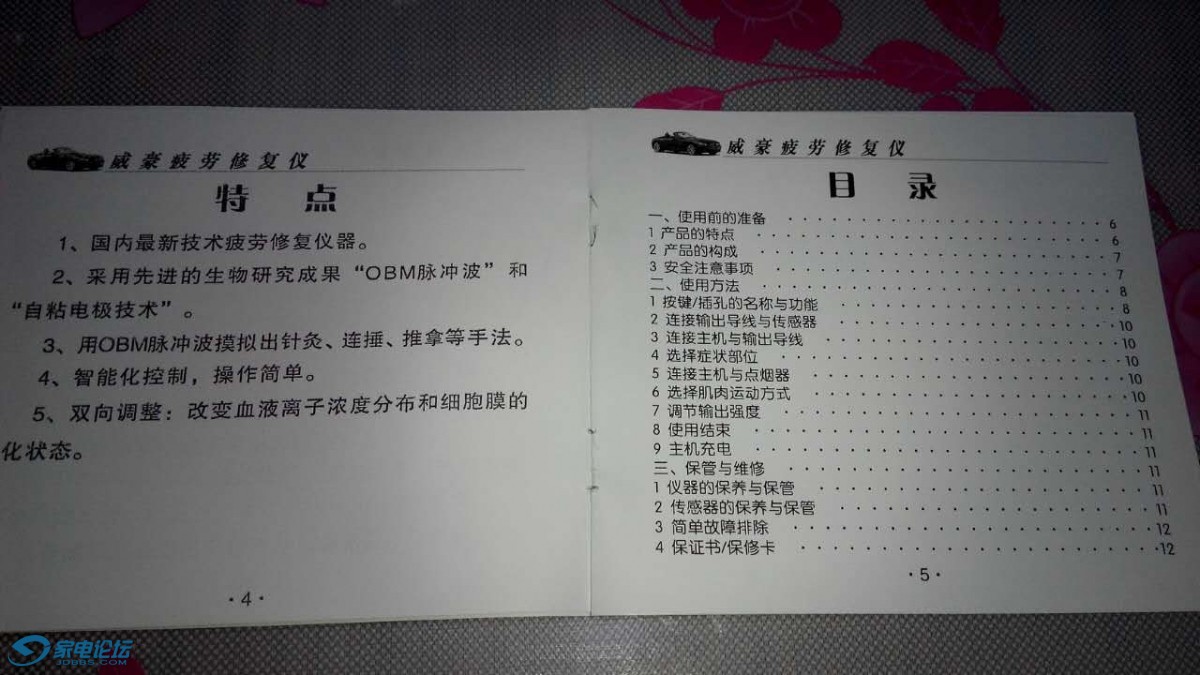 威豪疲劳修复仪
特 点
1、国内最新技术疲劳修复仪器。
2、采用先进的生物研究成果“OBM脉冲波”和
“自粘电极技术”。
3、用OBM脉冲波摸拟出针灸、连捶、推拿等手法。
4、智能化控制，操作简单。
5、双向调整：改变血液离子浓度分布和细胞膜的
化状态。
·4·
威豪疲劳修复仪
目 录
一、使用前的准备 6
1 产品的特点 6
2 产品的构成 7
3 安全注意事项 7
二、使用方法 8
1 按键/插孔的名称与功能 8
2 连接输出导线与传感器 10
3 连接主机与输出导线 10
4 选择症状部位 10
5 连接主机与点烟器 10
6 选择肌肉运动方式 10
7 调节输出强度 11
8 使用结束 11
9 主机充电 11
三、保管与维修 11
1 仪器的保养与保管 11
2 传感器的保养与保管 11
3 简单故障排除 12
4 保证书/保修卡 12
·5·
家电论坛
JDBBS.COM